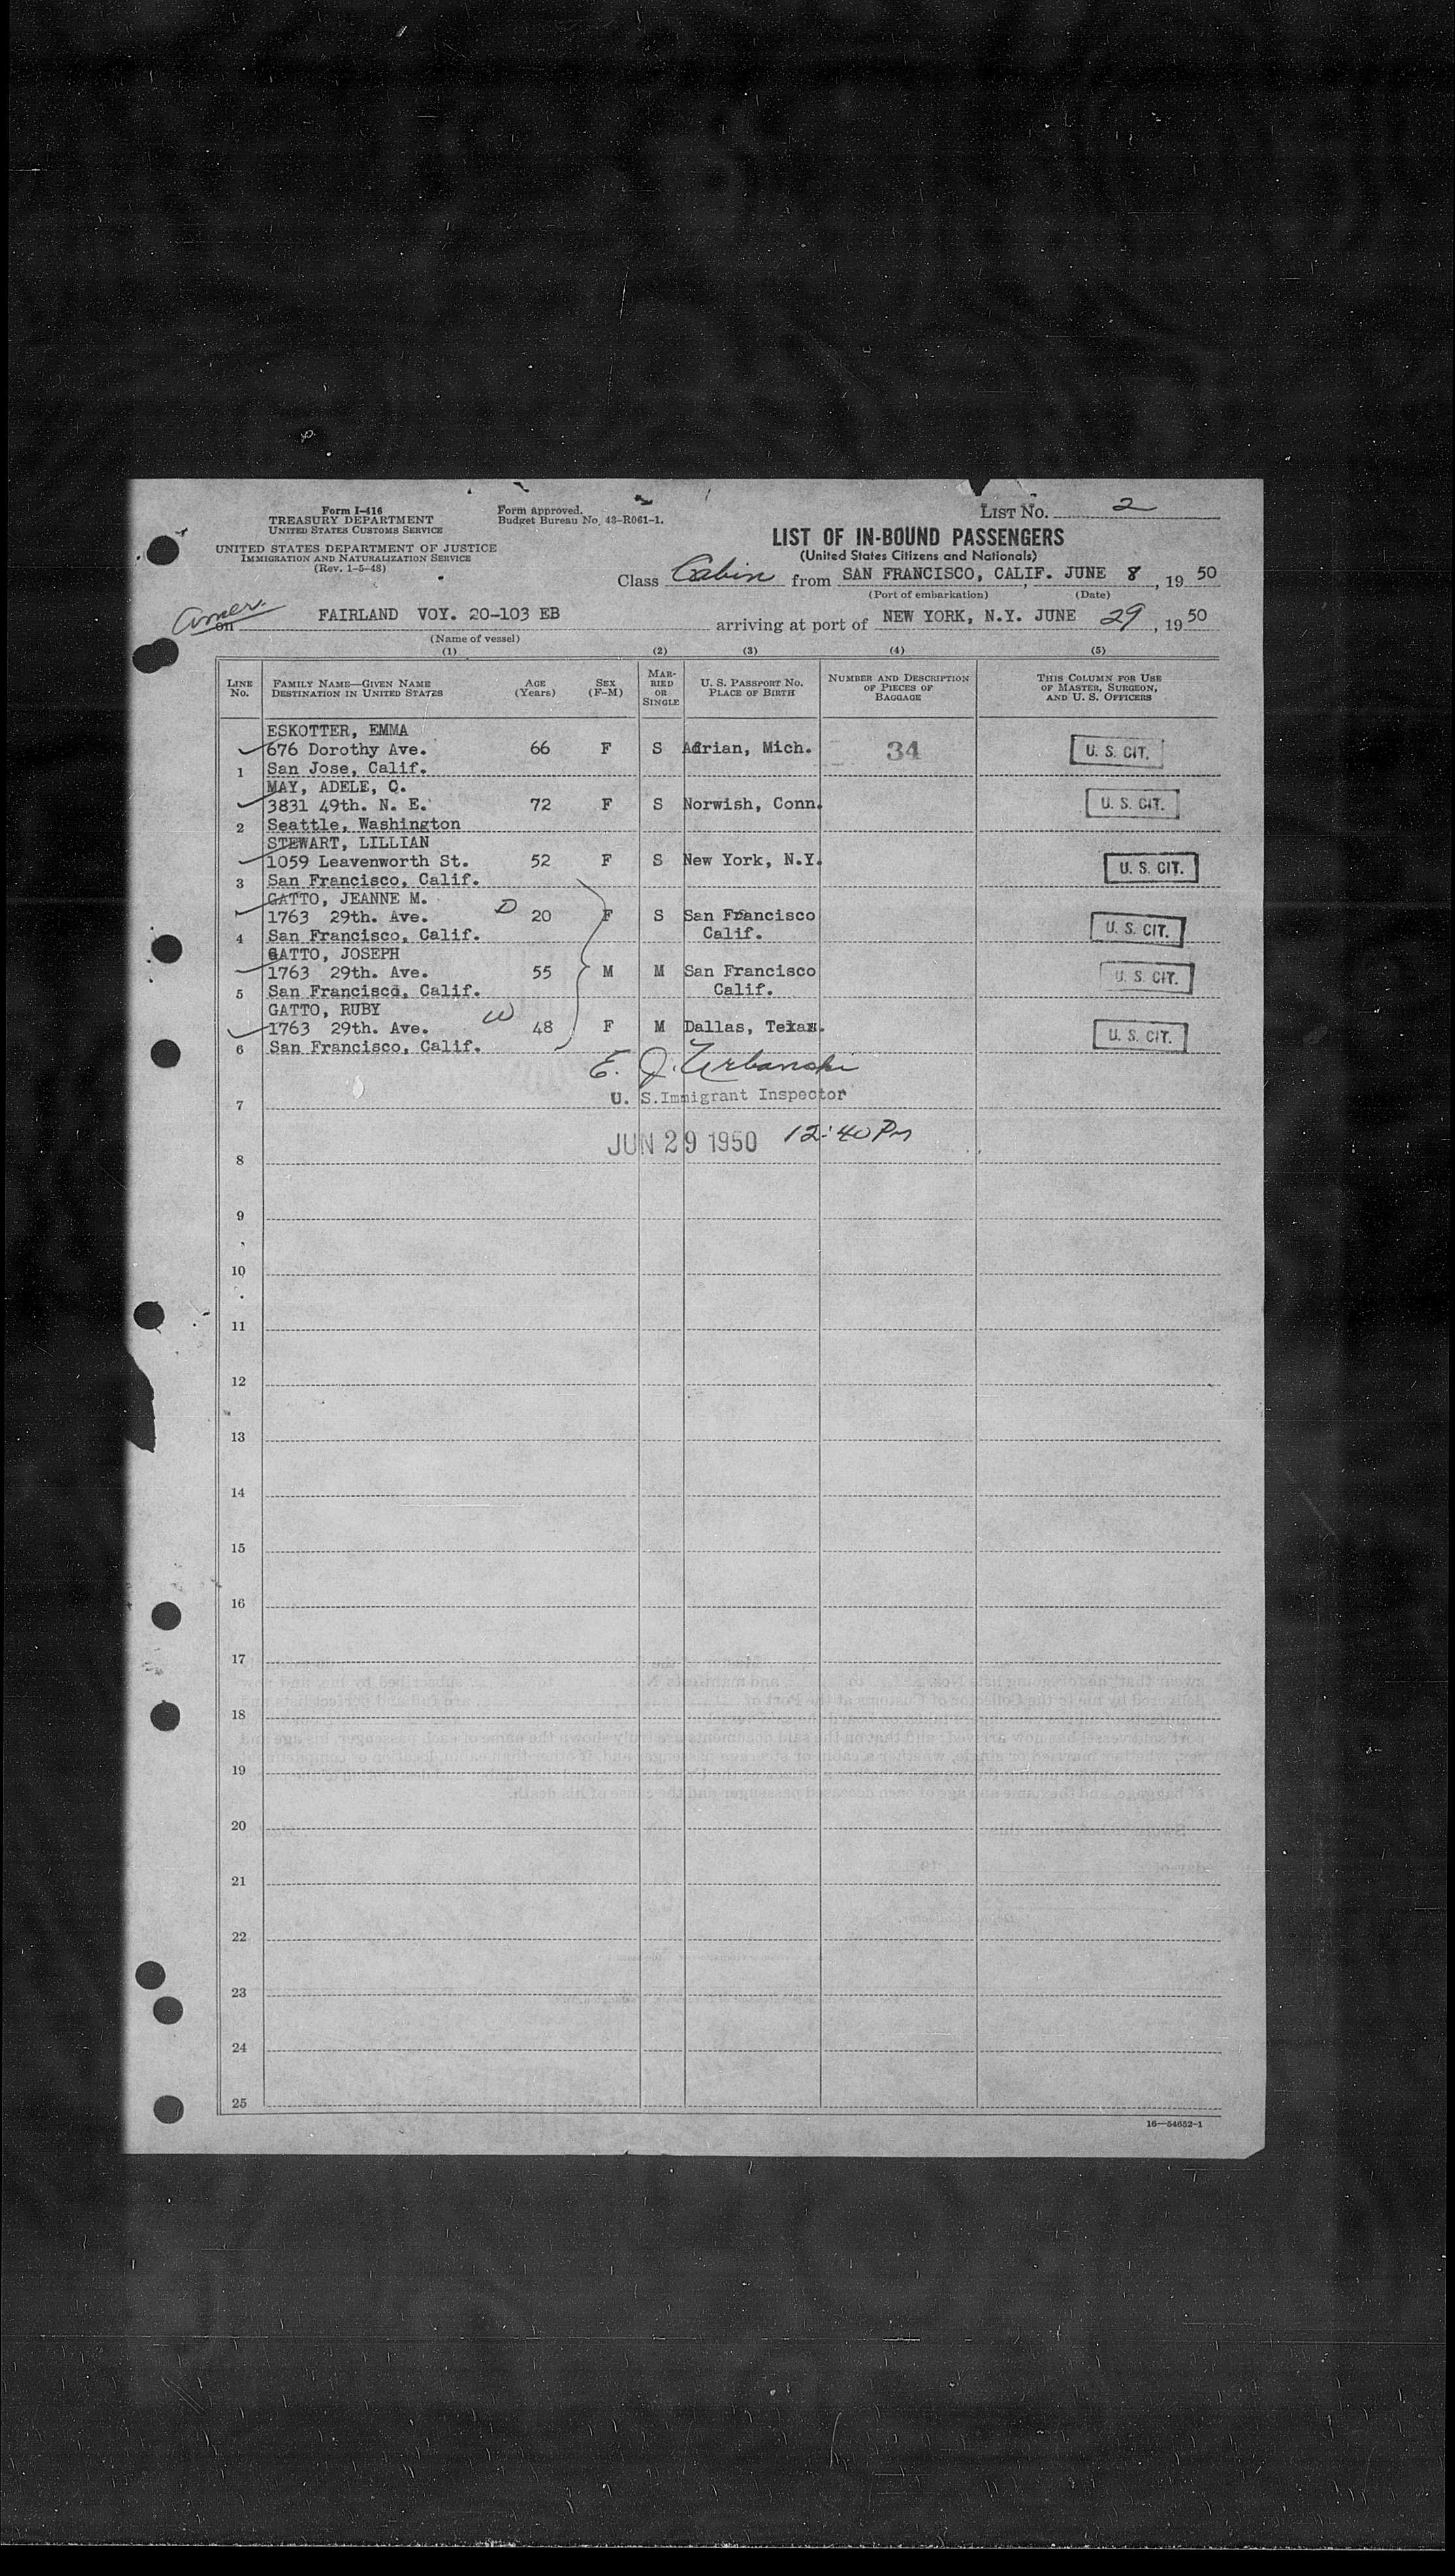 Form I-416
TREASURY DEPARTMENT
UNITED STATES CUSTOMS SERVICE
UNITED STATES DEPARTMENT OF JUSTICE
IMMIGRATION AND NATURALIZATION SERVICE
(Rev. 1-5-48)
Form approved.
Budget Bureau No. 43-R061-1.
LIST NO. 2
LIST OF IN-BOUND PASSENGERS
(United States Citizens and Nationals)
Class Cabin from SAN FRANCISCO, CALIF. JUNE 8, 1950
(Port of embarkation) (Date)
Amer.
on FAIRLAND VOY. 20-103 EB arriving at port of NEW YORK, N.Y. JUNE 29, 1950
(Name of vessel)
(1) (2) (3) (4) (5)
LINE No. FAMILY NAME—GIVEN NAME DESTINATION IN UNITED STATES AGE (Years) SEX (F-M) MARRIED OR SINGLE U. S. PASSPORT NO. PLACE OF BIRTH NUMBER AND DESCRIPTION OF PIECES OF BAGGAGE THIS COLUMN FOR USE OF MASTER, SURGEON, AND U. S. OFFICERS
ESKOTTER, EMMA
676 Dorothy Ave. 66 F S Adrian, Mich. 34 U. S. CIT.
1 San Jose, Calif.
MAY, ADELE, C.
3831 49th. N. E. 72 F S Norwish, Conn. U. S. CIT.
2 Seattle, Washington
STEWART, LILLIAN
1059 Leavenworth St. 52 F S New York, N.Y. U. S. CIT.
3 San Francisco, Calif.
GATTO, JEANNE M.
1763 29th. Ave. D 20 F S San Francisco U. S. CIT.
4 San Francisco, Calif. Calif.
GATTO, JOSEPH
1763 29th. Ave. 55 M M San Francisco U. S. CIT.
5 San Francisco, Calif. Calif.
GATTO, RUBY
1763 29th. Ave. W 48 F M Dallas, Texas. U. S. CIT.
6 San Francisco, Calif.
E. J. Urbanski
7 U. S. Immigrant Inspector
JUN 29 1950 12:40 PM
8
9
10
11
12
13
14
15
16
17
18
19
20
21
22
23
24
25
16—54652-1